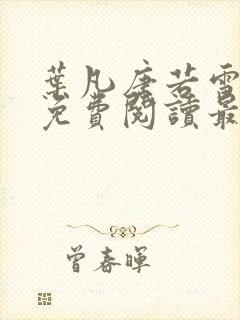 葉凡唐若雪
免費閱讀最
曾春暉